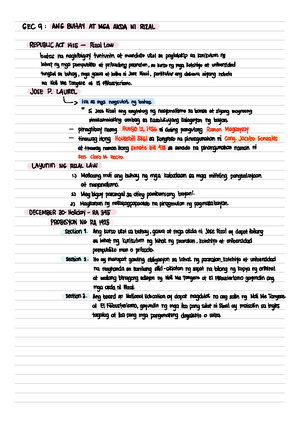 GEC 9 : ANG BUHAY AT MGA AKDA NI RIZAL
REPUBLIC ACT 1425 — Rizal Law
batas na nagbibigay tuntunin at mandato ukol sa paglalatag sa kurikulum ng
lahat ng mga pampubliko at pribadong paaralan, sa kurso ng mga kolehiyo at unibersidad
tungkol sa buhay, mga gawa at sulatin ni Jose Rizal, partikular ang dalawa niyang nobela
na Noli Me Tangere at El Filibusterismo.
JOSE P. LAUREL
isa sa mga nagsulat ng batas.
" Si Jose Rizal ang nagtatag ng nasyonalismo sa bansa at siyang
sa kasalukuyang kalagayan ng bayan.
— pinagtibay noong Hunyo 12, 1956 ni dating pangulong Ramon Magsaysay
— tinawag itong House Bill 5561 sa Kongreso na pinangunahan ni Cong. Jacobo Gonzales
at tinawag naman itong Senate Bill 438 sa senado na pinangunahan naman ni
Sen. Claro M. Recto.
LAYUNIN NG RIZAL LAW
1.) Maituro sa mga kabataan
at nasyonalismo.
2.) Magbigay parangal sa ating pambansang bayani.
3.) Magkaroon ng
DECEMBER 30- Holiday - RA 345
PROBISYON NG RA 1425
Section 1. Ang kurso ukol sa buhay, gawa at mga akda ni Jose Rizal ay dapat bilang
sa lahat ng kurikulum ng lahat ng paaralan, kolehiyo at unibersidad
pampubliko man o pribado.
Section 2. Ito ay sa lahat ng paaralan, kolehiyo at unibersidad
na magtanda sa kanilang silid-aklatan ng sapat na bilang ng kopya ng orihinal
at walang binagong edisyon ng Noli Me Tangere at El Filibusterismo gayundin ang
mga akda ni Rizal
Section 3. Ang board of National Education ay dapat magdulot na ang salin ng Noli Me Tangere
at El Filibusterismo, gayundin ng mga iba pang sulat ni Rizal ay maisalin sa Ingles
tagalog at iba pang mga pangunahing dayalekto o salita.